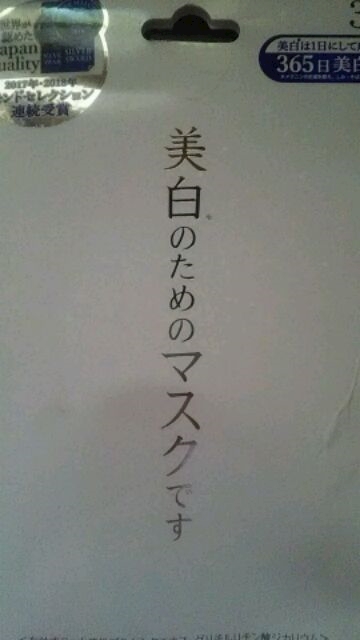 世界が
認めた
Japan
Quality
2017年・2018年
モンドセレクション
連続受賞
美白は1日にして
365日美白
美白*のためのマスクです
グリチルリチン酸ジカリウム>